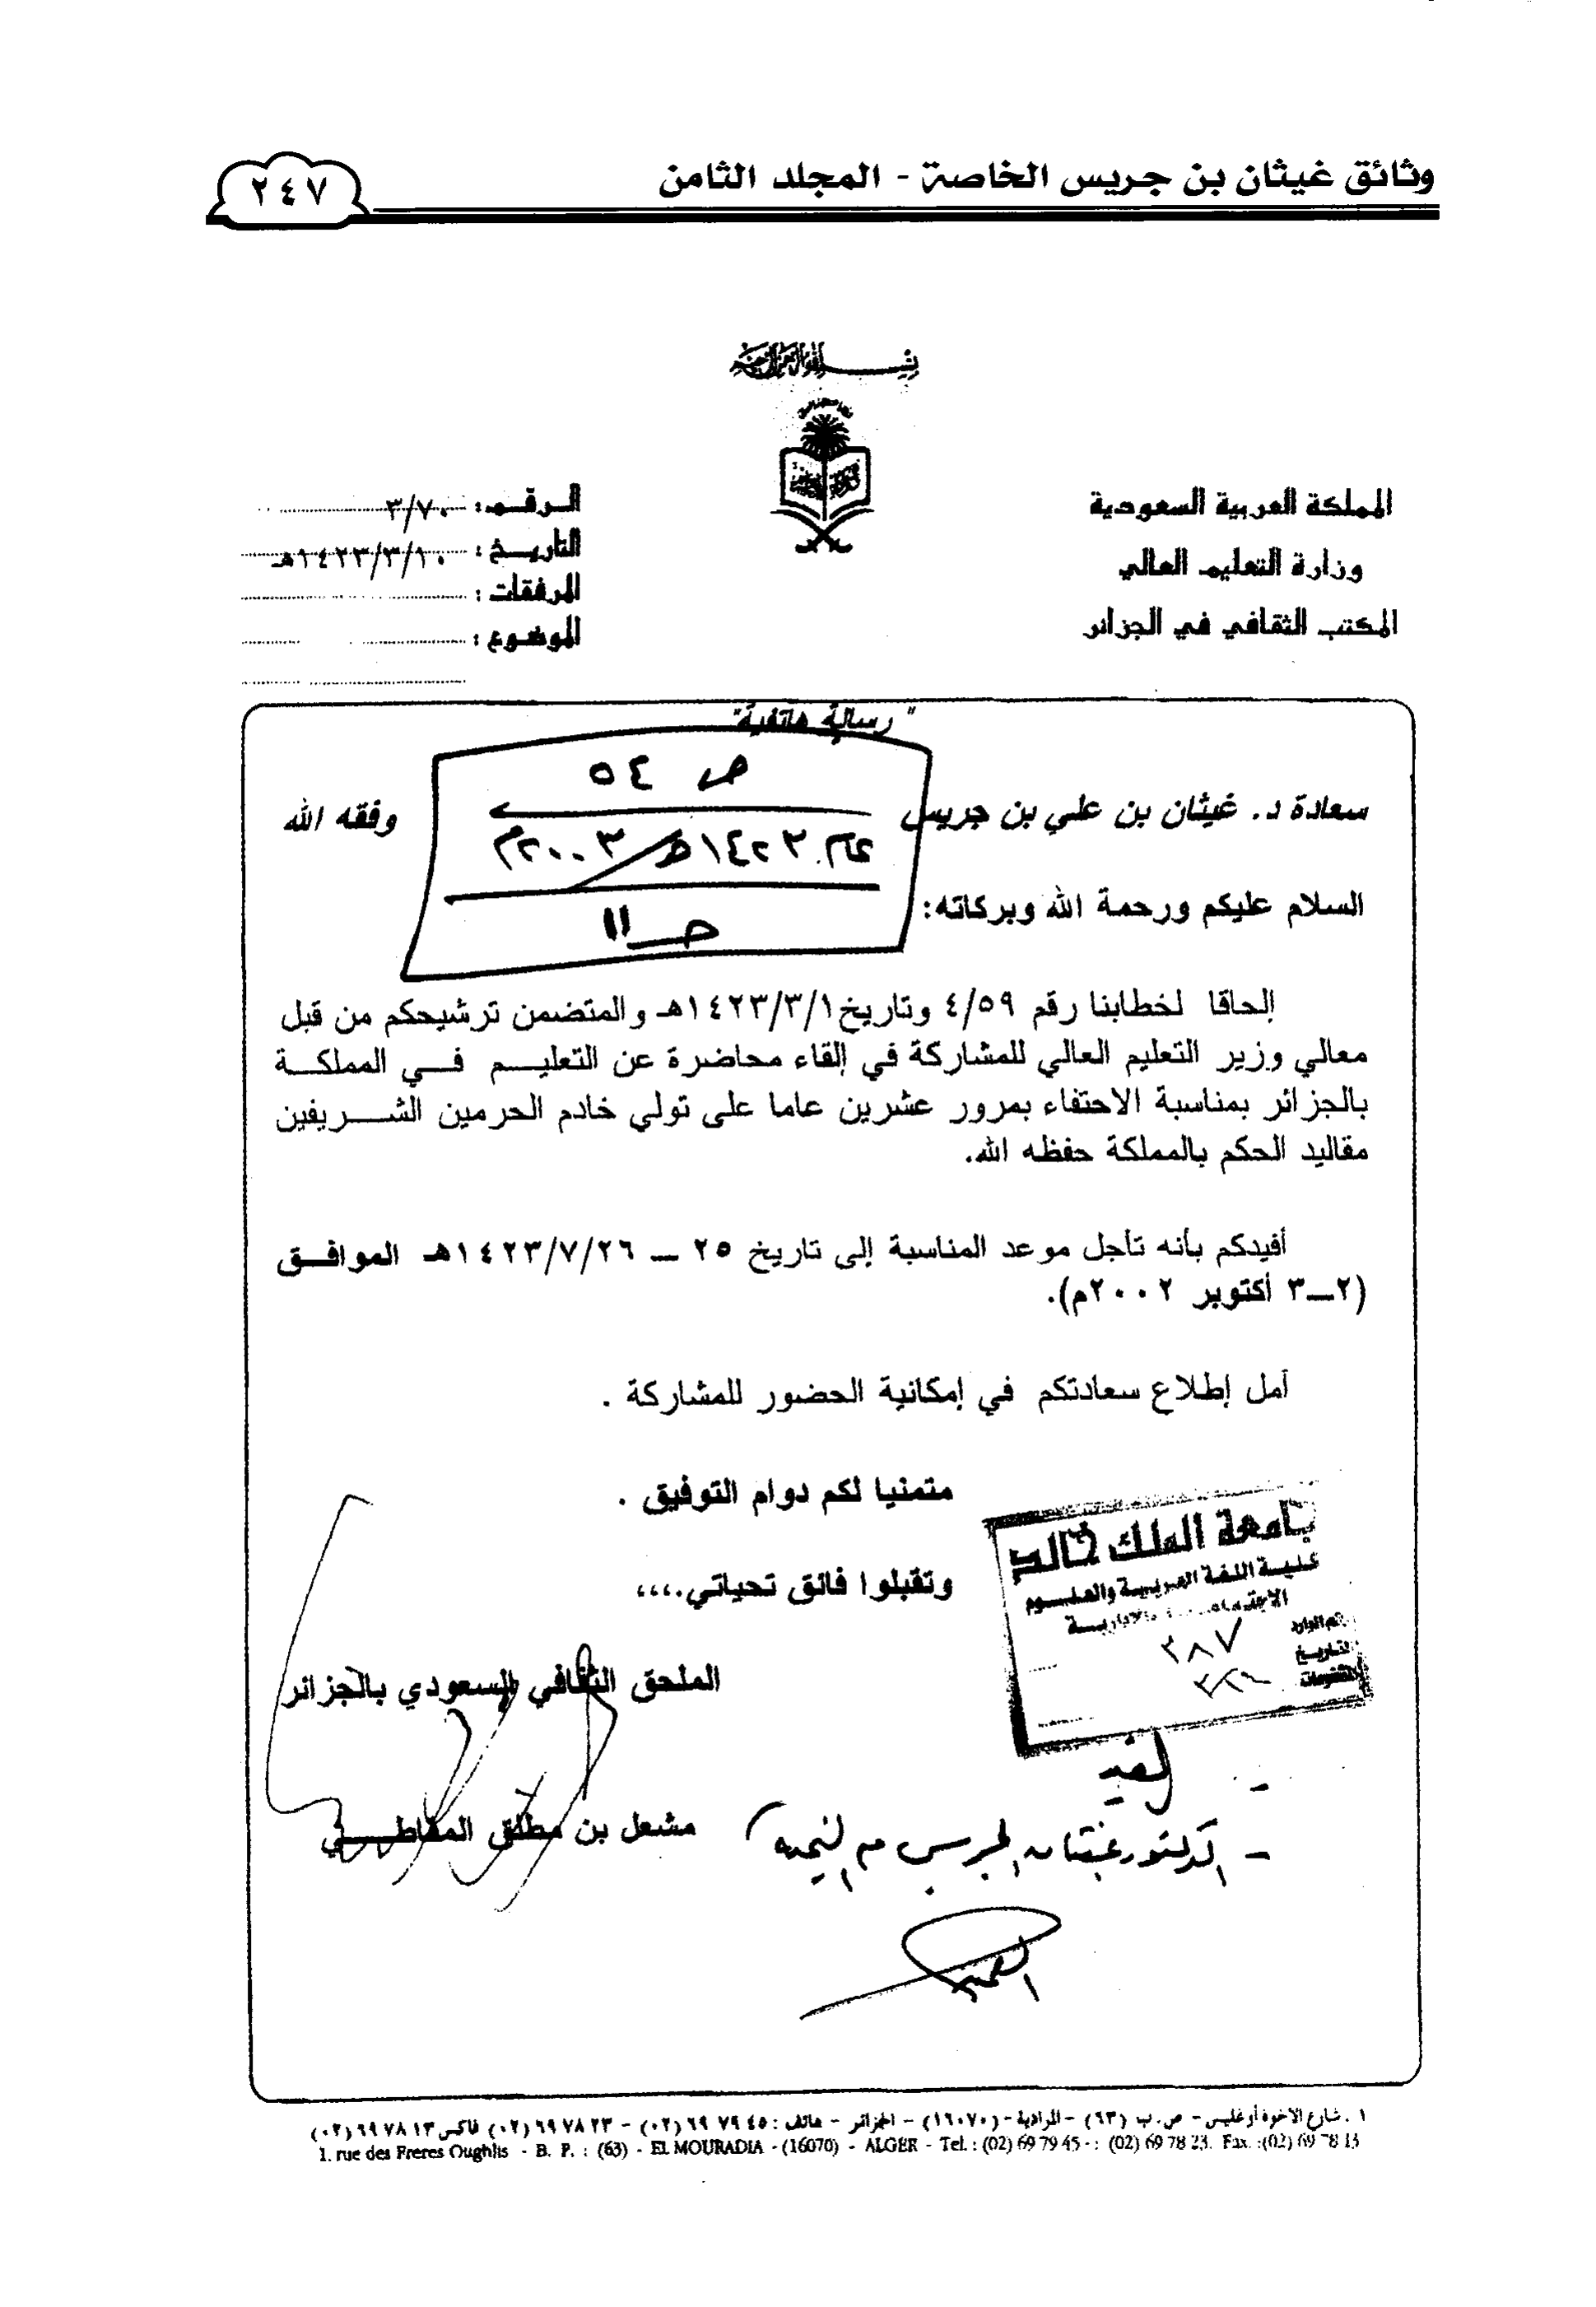 وثائق غيثان بن جريس الخاصة - المجلد الثامن
٢٤٧
المملكة العربية السعودية
وزارة التعليم العالي
المكتب الثقافي في الجزائر
الرقم : ٣/٧٠
التاريخ : ١٤٢٣/٣/١٠هـ
المرفقات :
الموضوع :
"رسالة هاتفية"
ص ٥٤
١٤٢٣هـ/٢٠٠٣م
حـ ١١
سعادة د. غيثان بن علي بن جريس وفقه الله
السلام عليكم ورحمة الله وبركاته:
إلحاقا لخطابنا رقم ٤/٥٩ وتاريخ ١٤٢٣/٣/١هـ والمتضمن ترشيحكم من قبل
معالي وزير التعليم العالي للمشاركة في إلقاء محاضرة عن التعليم في المملكة
بالجزائر بمناسبة الاحتفاء بمرور عشرين عاما على تولي خادم الحرمين الشريفين
مقاليد الحكم بالمملكة حفظه الله.
أفيدكم بأنه تأجل موعد المناسبة إلى تاريخ ٢٥ – ١٤٢٣/٧/٢٦هـ الموافق
(٢–٣ أكتوبر ٢٠٠٢م).
آمل إطلاع سعادتكم في إمكانية الحضور للمشاركة .
متمنيا لكم دوام التوفيق .
وتقبلوا فائق تحياتي،،،،
جامعة الملك خالد
كلية اللغة العربية والعلوم
الاجتماعية والإدارية
رقم الوارد ٣٨٧
التاريخ
المشفوعات
الملحق الثقافي السعودي بالجزائر
مشعل بن مطلق المقاطي
١ . شارع الاخوة أوغليس - ص.ب (٦٣) - المرادية - (١٦٠٧٠) - الجزائر - هاتف : ٤٥ ٧٩ ٦٩ (٠٢) - ٢٣ ٧٨ ٦٩ (٠٢) فاكس ١٣ ٧٨ ٦٩ (٠٢)
1. rue des Freres Oughlis - B. P. : (63) - EL MOURADIA - (16070) - ALGER - Tel. : (02) 69 79 45 - : (02) 69 78 23. Fax. :(02) 69 78 13